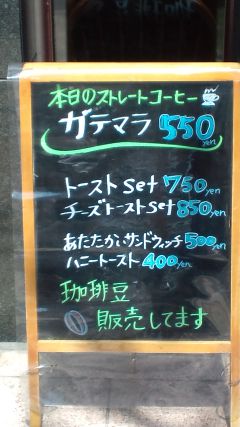 本日のストレートコーヒー
ガテマラ 550yen
トーストset 750yen
チーズトーストset 850yen
あたたかいサンドウィッチ 500yen
ハニートースト 400yen
珈琲豆
販売してます